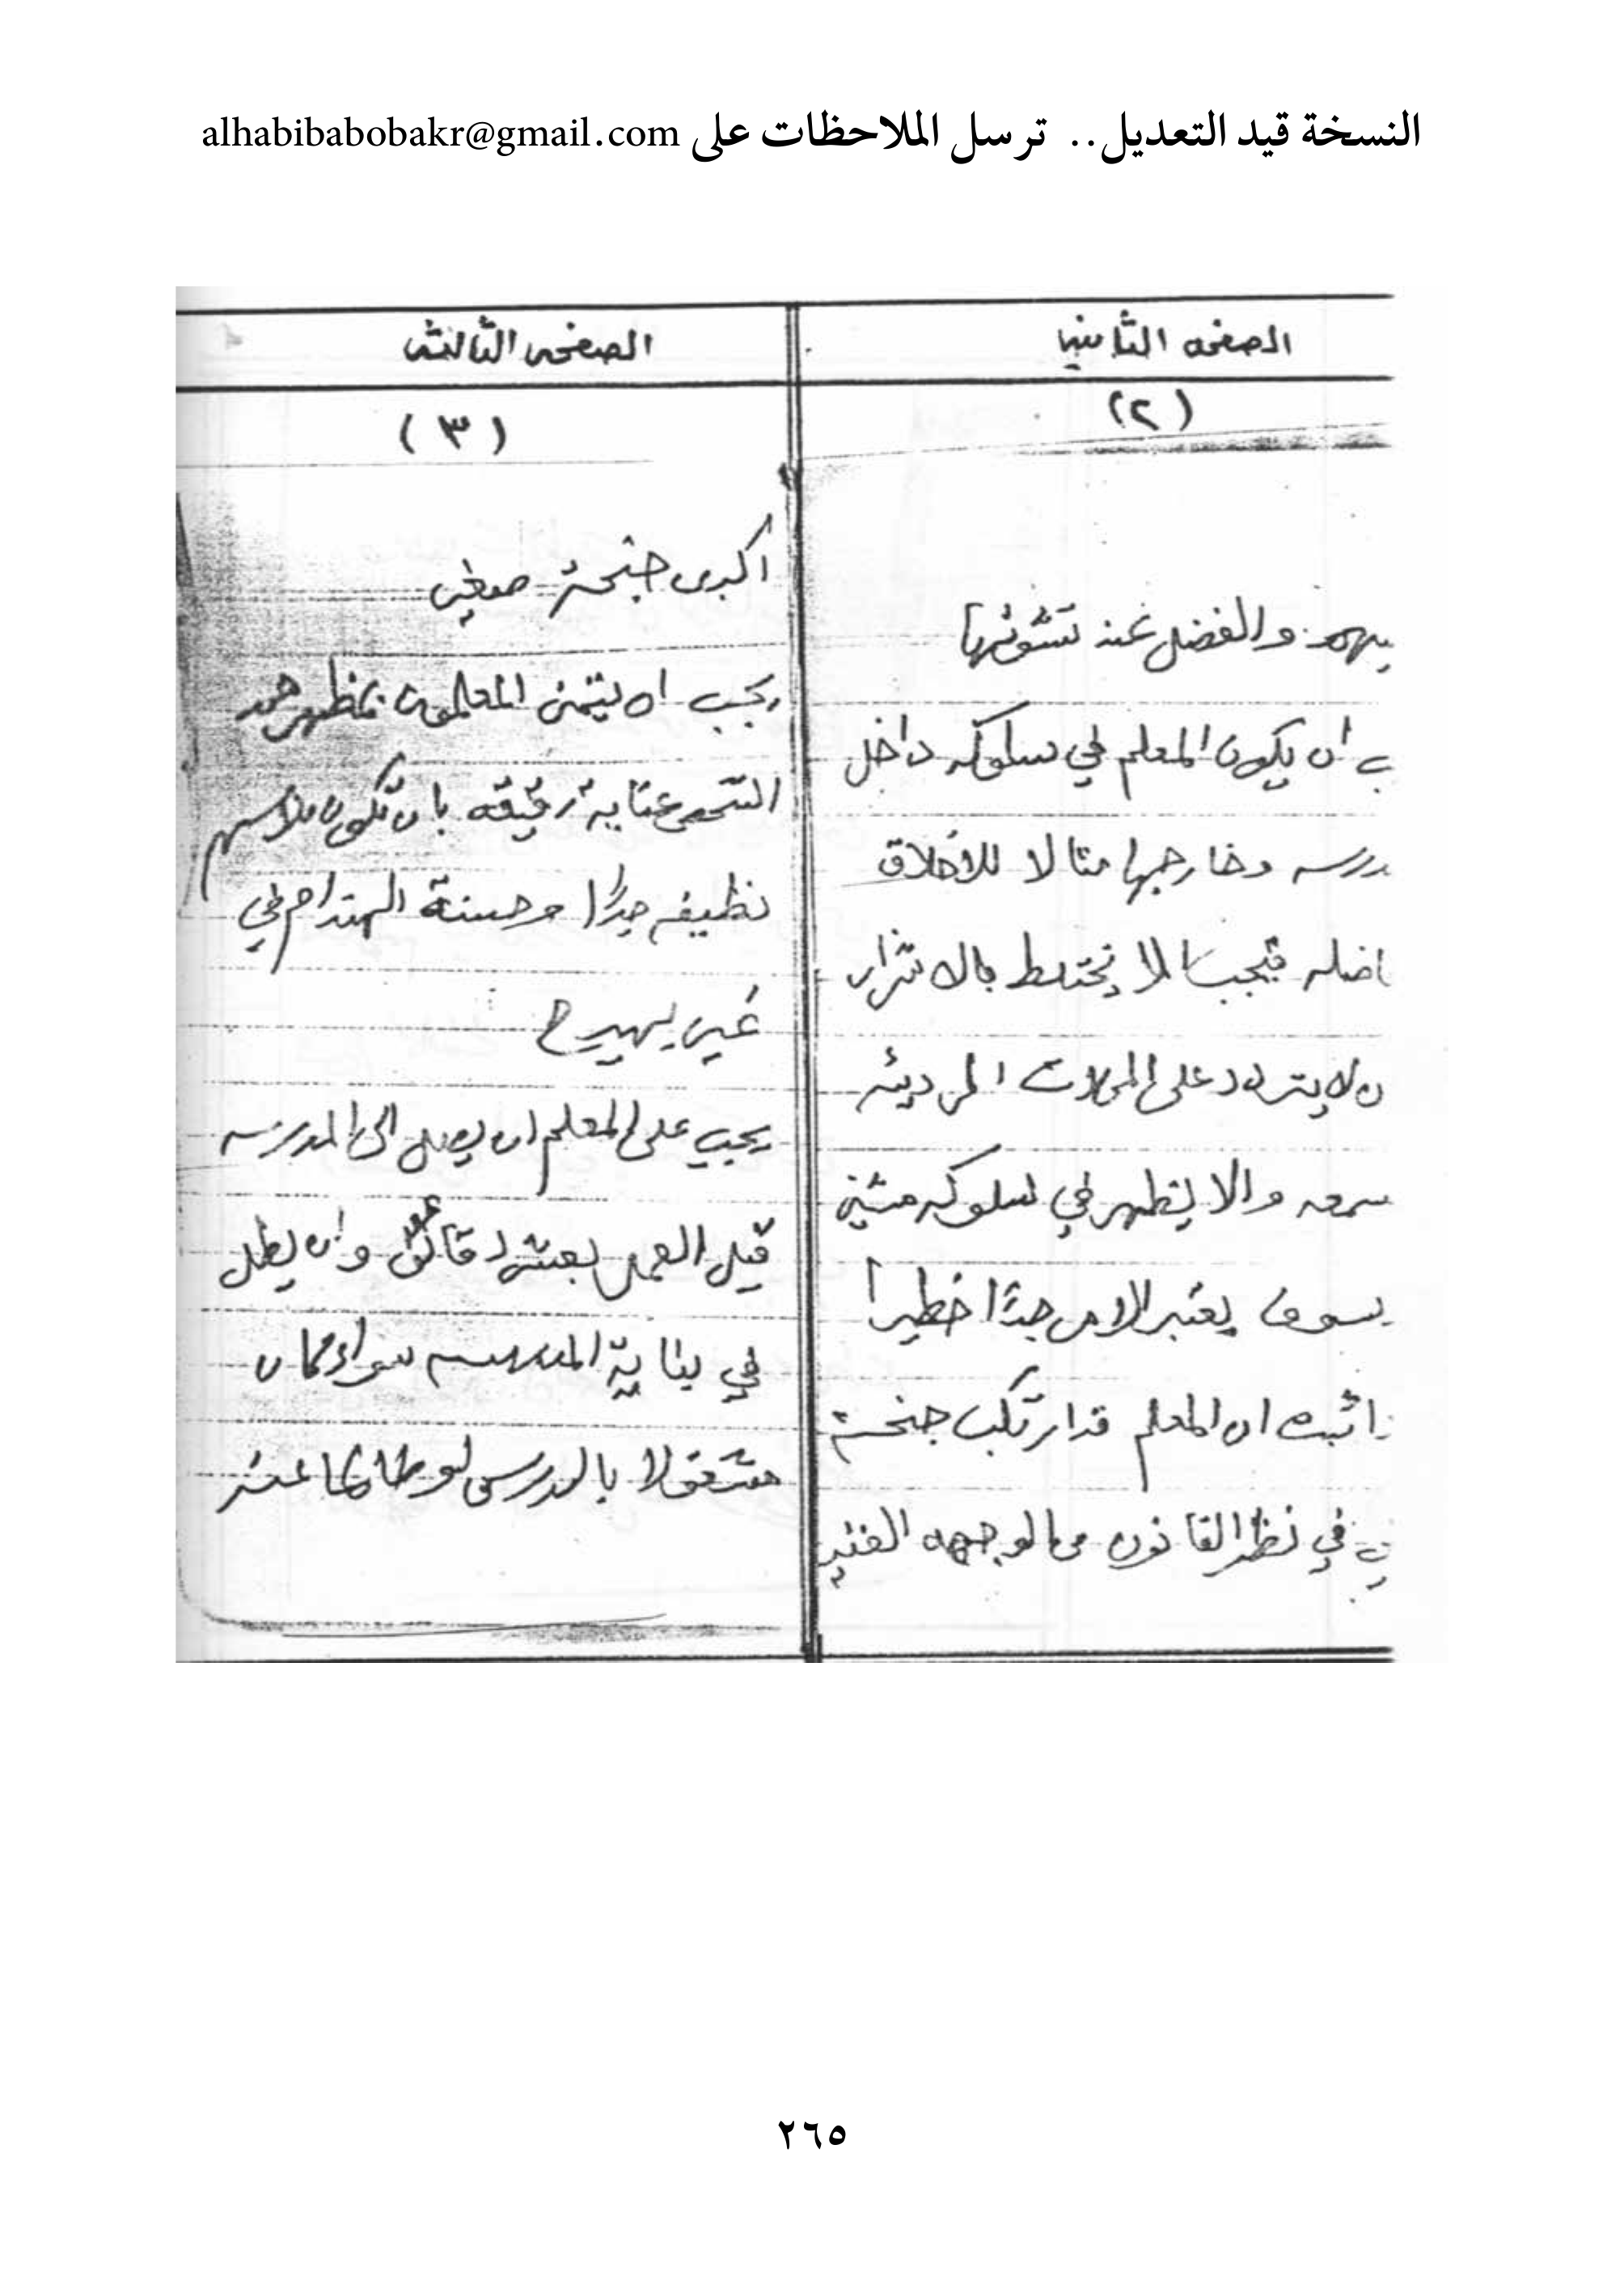 النسخة قيد التعديل.. ترسل الملاحظات على alhabibabobakr@gmail.com
الصفحه الثانيه
(٢)
والفضل عند
ان يكون المعلم في سلوكه داخل
درسه وخارجها مثالا للاخلاق
اضله فيجب الا يختلط بالاشرار
ن لا يتردد على المحلات الرديئه
سمعه والا يظهر في سلوكه مشين
سوف يعتبر الامر جدًا خطيرا
اثبت ان المعلم قد ارتكب جنحة
في نظر القانون من الوجهه الفنيه
الصفحه الثالثه
(٣)
اكبرى جنحة صغيره
يجب ان يعتني المعلمون بمظهرهم
عناية دقيقه بان تكون ملابسهم
نظيفه جدًا وحسنة الهندام في
غير بهرج
يجب على المعلم ان يصل الى المدرسه
قبل العمل بعشر دقائق وان يظل
في بناية المدرسه سواء كان
مشغولا بالدرس او
٢٦٥